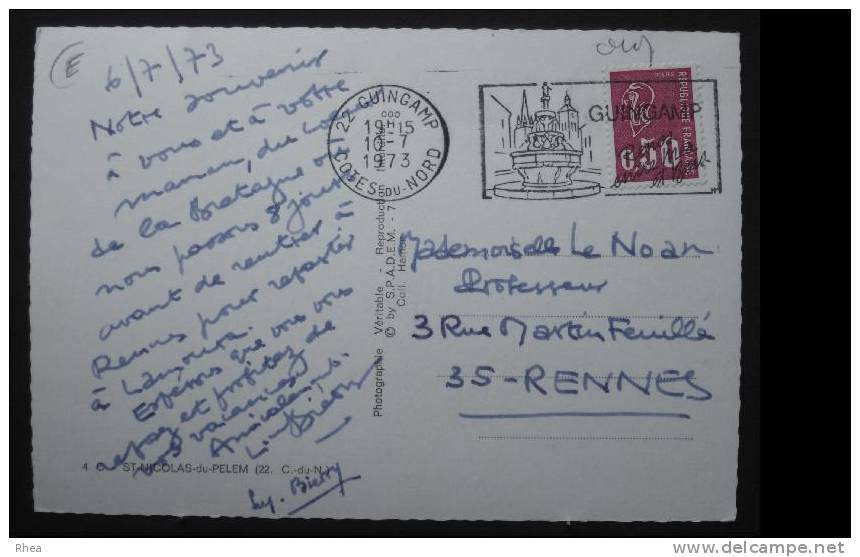 6/7/73
Notre souvenir
à vous et à votre
maman, du
de la Bretagne où
nous passons 8 jours
avant de rentrer à
Rennes pour repartir
à
Espérons que vous vous
et profitez de
vos vacances
Amicalement
4 ST-NICOLAS-du-PELEM (22. C.-du-N.)
22 GUINGAMP
19H15
10-7
1973
COTES-DU-NORD
GUINGAMP
REPUBLIQUE FRANÇAISE
0,50
Photographie Véritable - Reproduction
© by S.P.A.D.E.M. - 7
Coll.
Mademoiselle Le Noan
Professeur
3 Rue Martin Feuillé
35-RENNES
Rhea
www.delcampe.net